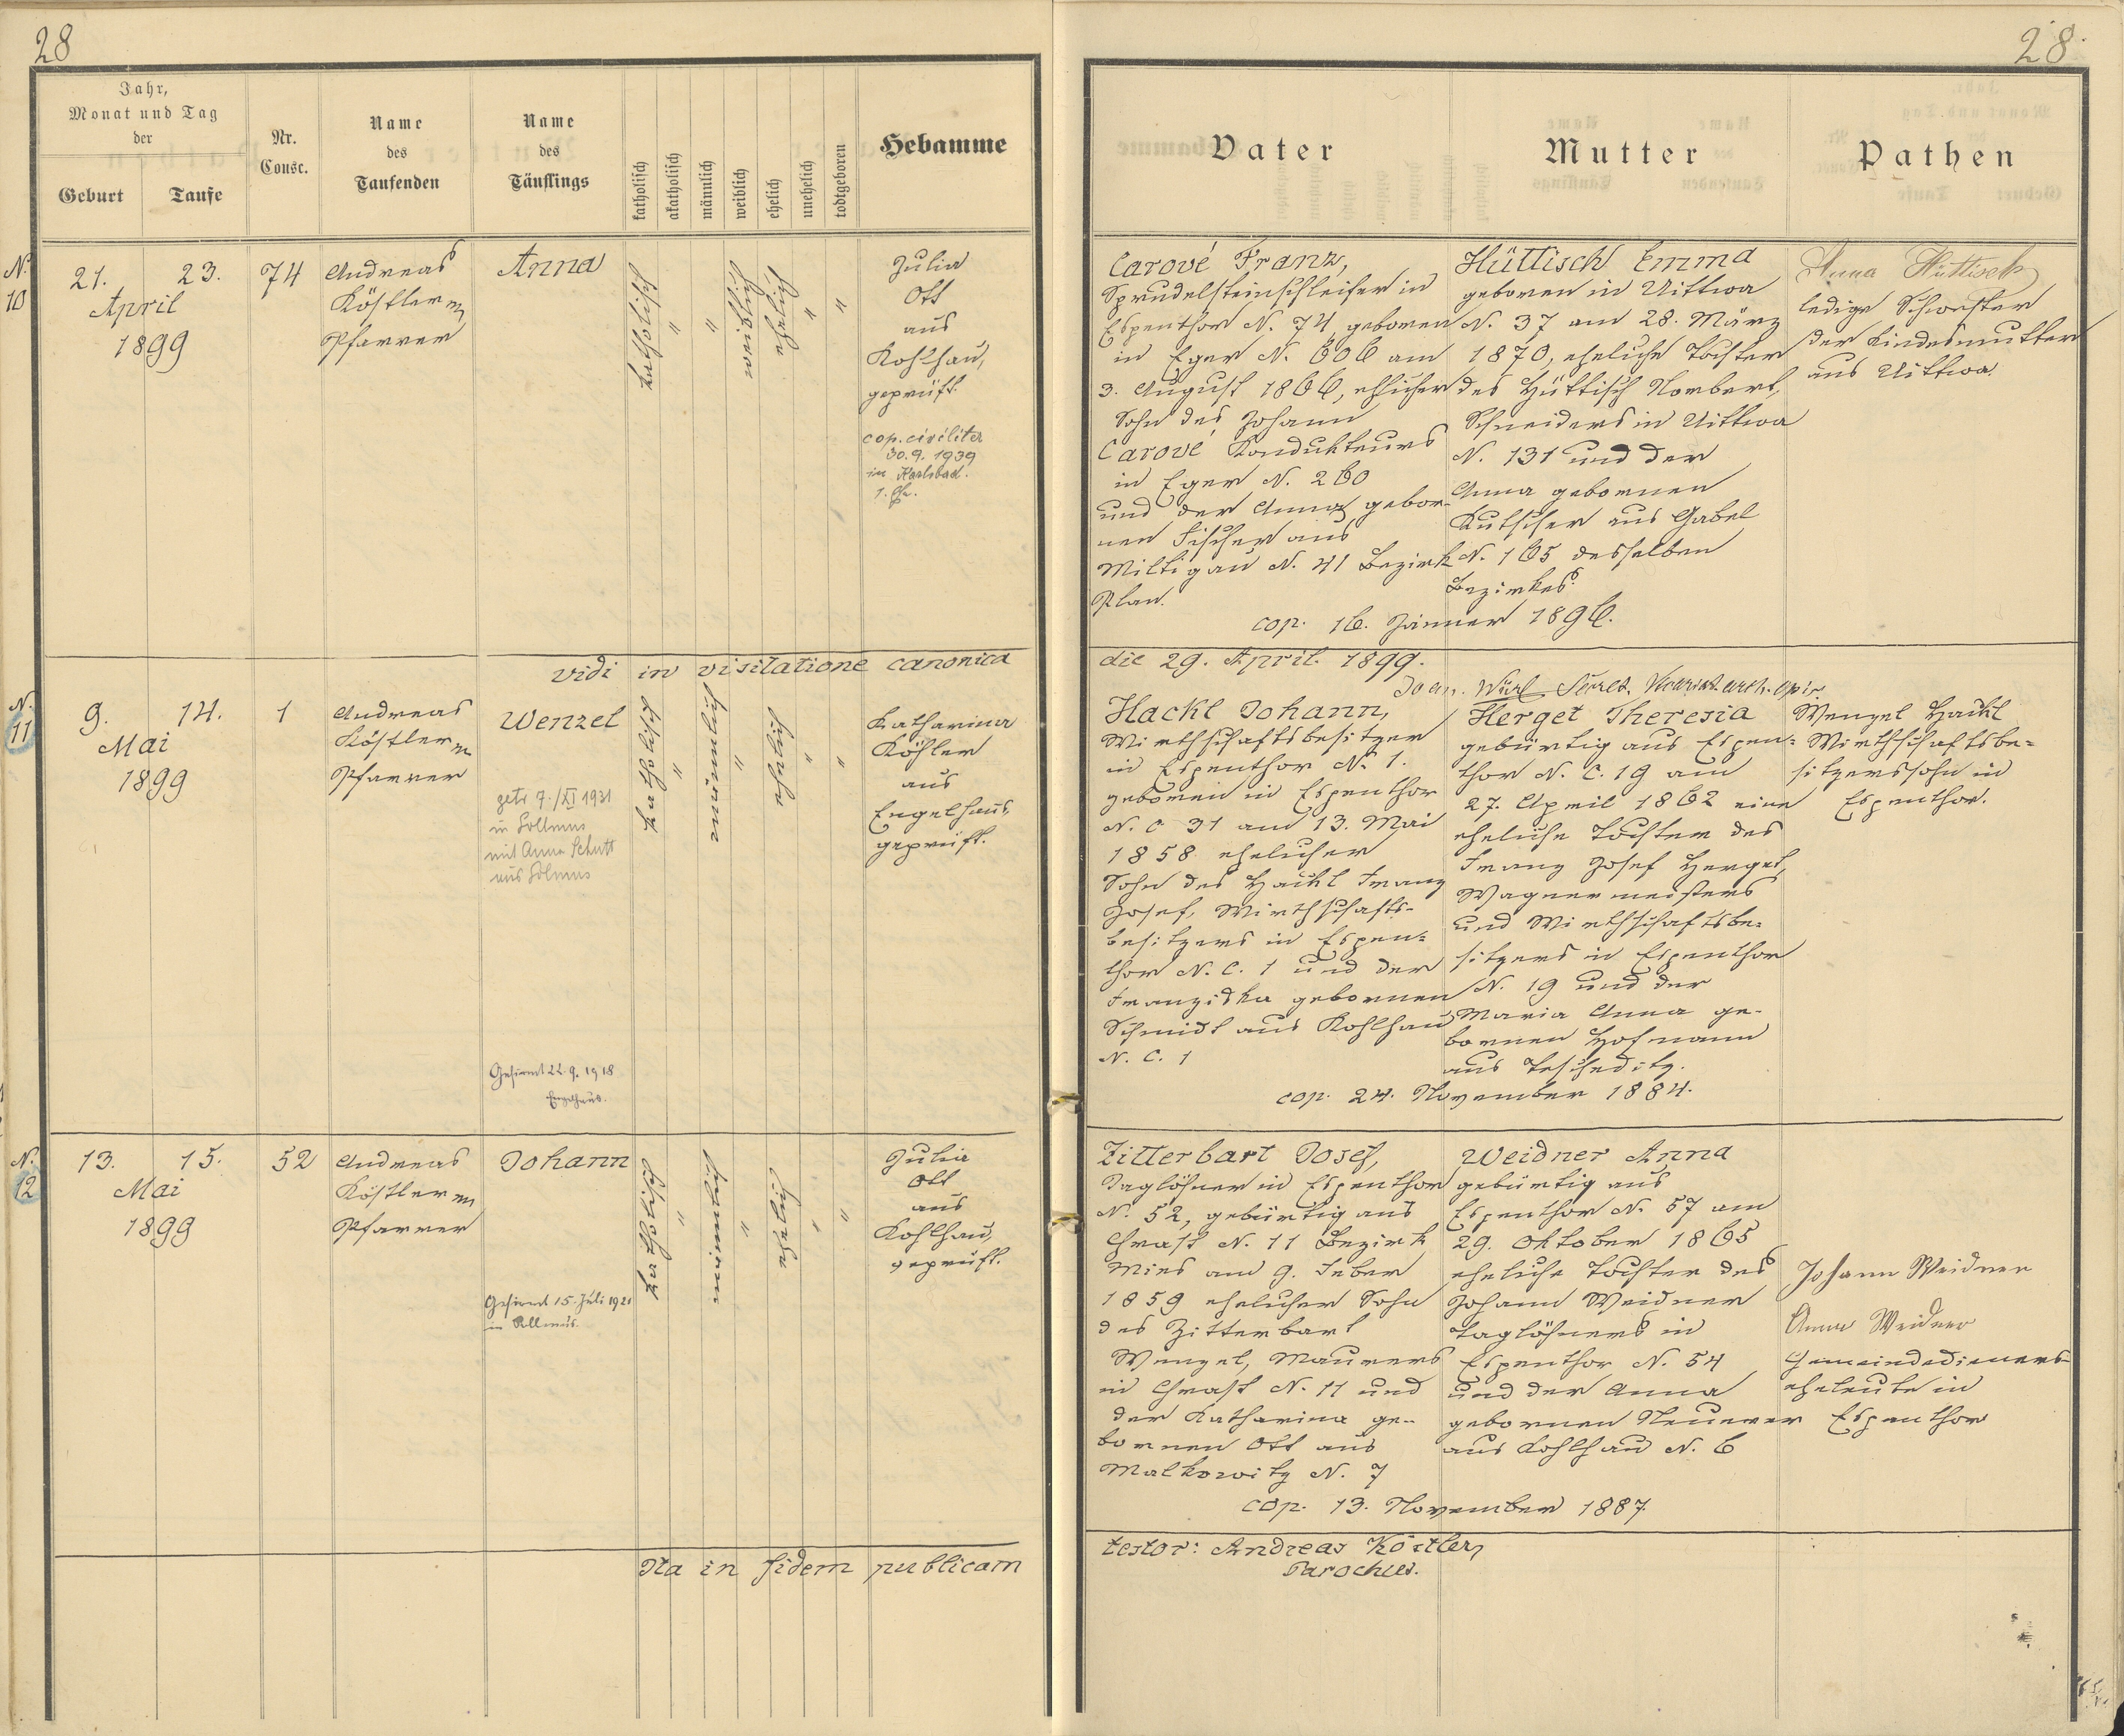 28
Jahr,
Monat und Tag
der
Geburt
Taufe
Nr.
Consc.
Name
des
Taufenden
Name
des
Täuflings
katholisch
akatholisch
männlich
weiblich
ehelich
unehelich
todtgeboren
Hebamme
N.
10
21. 23.
April
1899
74
Andreas
Köstler
Pfarrer
Anna
katholisch
"
"
weiblich
ehelich
"
"
Julia
Ott
aus
Kohlhau,
geprüft.
cop. civiliter
30.9.1939
in Karlsbad.
vidi in visitatione canonica
N.
11
9. 14.
Mai
1899
1
Andreas
Köstler
Pfarrer
Wenzel
getr 7./XI 1931
in Sollmus
mit Anna Schutt
aus Solmus
Gefirmt 22.9.1918
Engelhaus.
katholisch
"
männlich
"
ehelich
"
"
Katharina
Köhler
aus
Engelhaus,
geprüft.
N.
12
13. 15.
Mai
1899
52
Andreas
Köstler
Pfarrer
Johann
Gefirmt 15. Juli 1921
in
katholisch
"
männlich
"
ehelich
"
"
Julia
Ott
aus
Kohlhau,
geprüft.
Ita in fidem publicam
28.
Vater
Mutter
Pathen
Carové Franz,
Sprudelsteinschleifer in
Espenthor N. 74, geboren
in Eger N. 606 am
3. August 1866, ehlicher
Sohn des Johann
Carové Kondukteurs
in Eger N. 260
und der Anna gebor-
nen Fischer aus
Miltigau N. 41 Bezirk
Plan.
Hüttisch Emma
geboren in Uittwa
N. 37 am 28. März
1870, eheliche Tochter
des Hüttisch Norbert,
Schneiders in Uittwa
N. 131 und der
Anna gebornen
Kutscher aus Gabel
N. 165 desselben
Bezirkes.
cop. 16. Jänner 1896.
Anna Hüttisch
ledige Schwester
der Kindesmutter
aus Uittwa.
die 29. April. 1899.
Joan. Würl Secret.
Hackl Johann,
Wirthschaftsbesitzer
in Espenthor N. 1.
geboren in Espenthor
N. C 31 am 13. Mai
1858 ehelicher
Sohn des Hackl Franz
Josef, Wirthschafts-
besitzers in Espen=
thor N. C. 1 und der
Franziska gebornen
Schmidt aus Kohlhau
N. C. 1
Herget Theresia
gebürtig aus Espen=
thor N. C. 19 am
27. April 1862 eine
eheliche Tochter des
Franz Josef Herget,
Wagnermeisters
und Wirthschaftsbe=
sitzers in Espenthor
N. 19 und der
Maria Anna ge-
bornen Hofmann
aus Tescheditz.
cop. 24. November 1884.
Wenzel Hackl
Wirthschaftsbe=
sitzerssohn in
Espenthor.
Zitterbart Josef,
Taglöhner in Espenthor
N. 52, gebürtig aus
Chrast N. 11 Bezirk
Mies am 9. Feber
1859 ehelicher Sohn
des Zitterbart
Wenzel, Maurers
in Chrast N. 11 und
der Katharina ge-
bornen Ott aus
Malkowitz N. 7
Weidner Anna
gebürtig aus
Espenthor N. 57 am
29. Oktober 1865
eheliche Tochter des
Johann Weidner
Taglöhners in
Espenthor N. 54
und der Anna
gebornen Neuerer
aus Kohlhau N. 6
cop. 13. November 1887.
Johann Weidner
Anna Weidner
Gemeindedieners-
eheleute in
Espenthor
testor: Andreas Köstler,
Parochus.